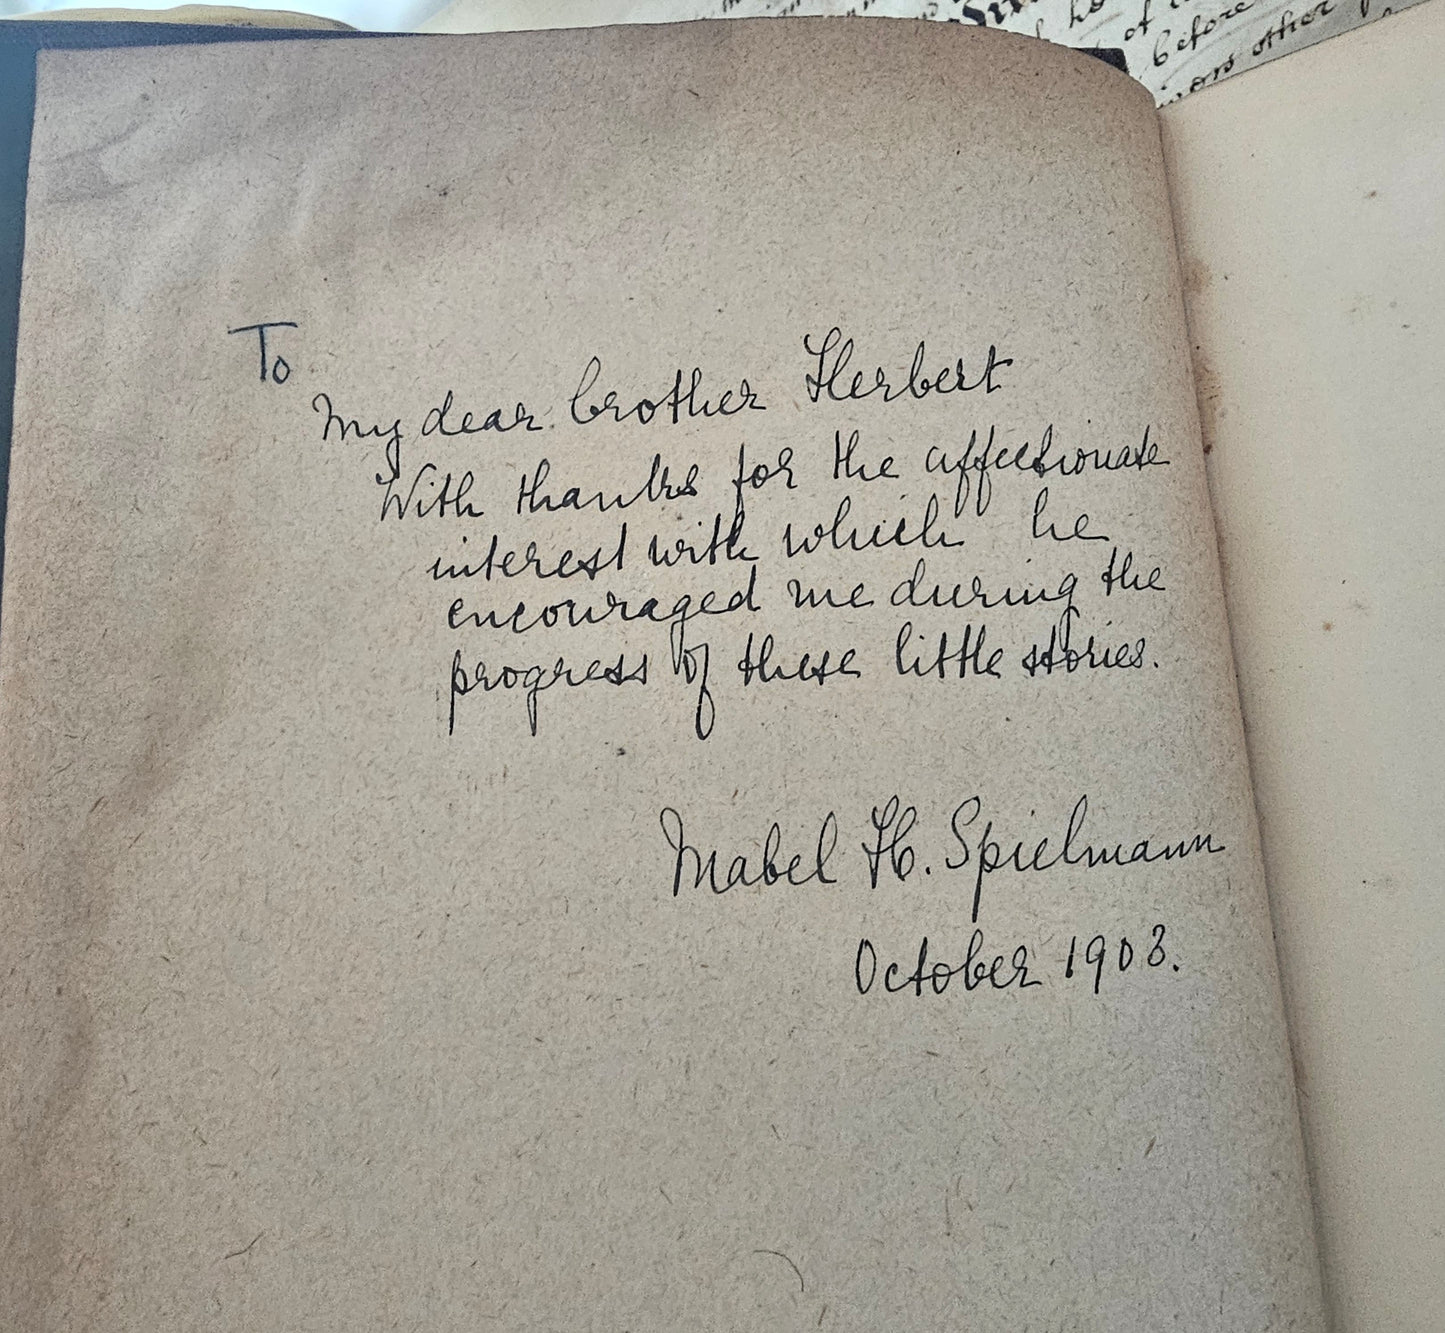 of
before
other
To
My dear brother Herbert
With thanks for the affectionate
interest with which he
encouraged me during the
progress of these little stories.
Mabel H. Spielmann
October 1903.